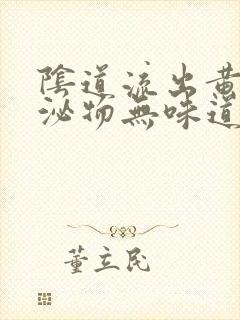 陰道流出黃
泌物無味道
董立民